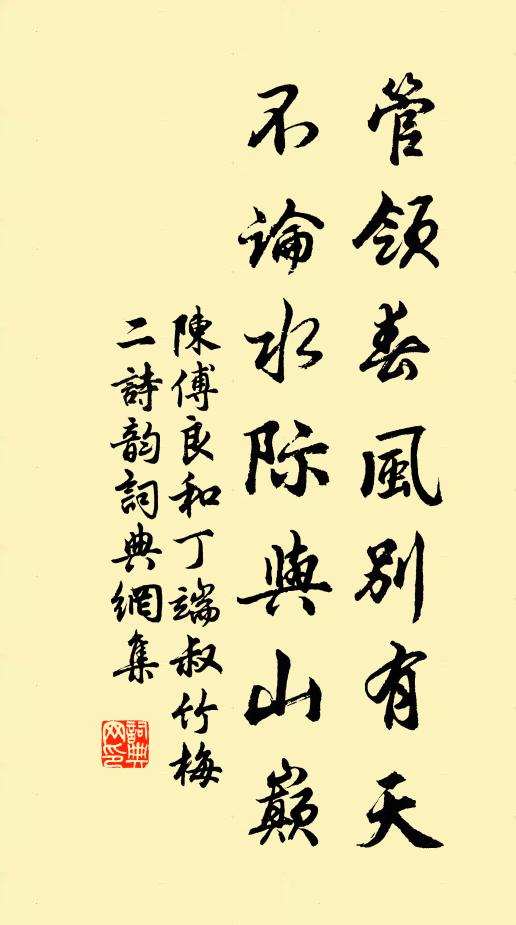 管领春風别有天
不論水际與山巔
陳傅良和丁端叔竹梅
二詩韵詞典網集
詞典
网印